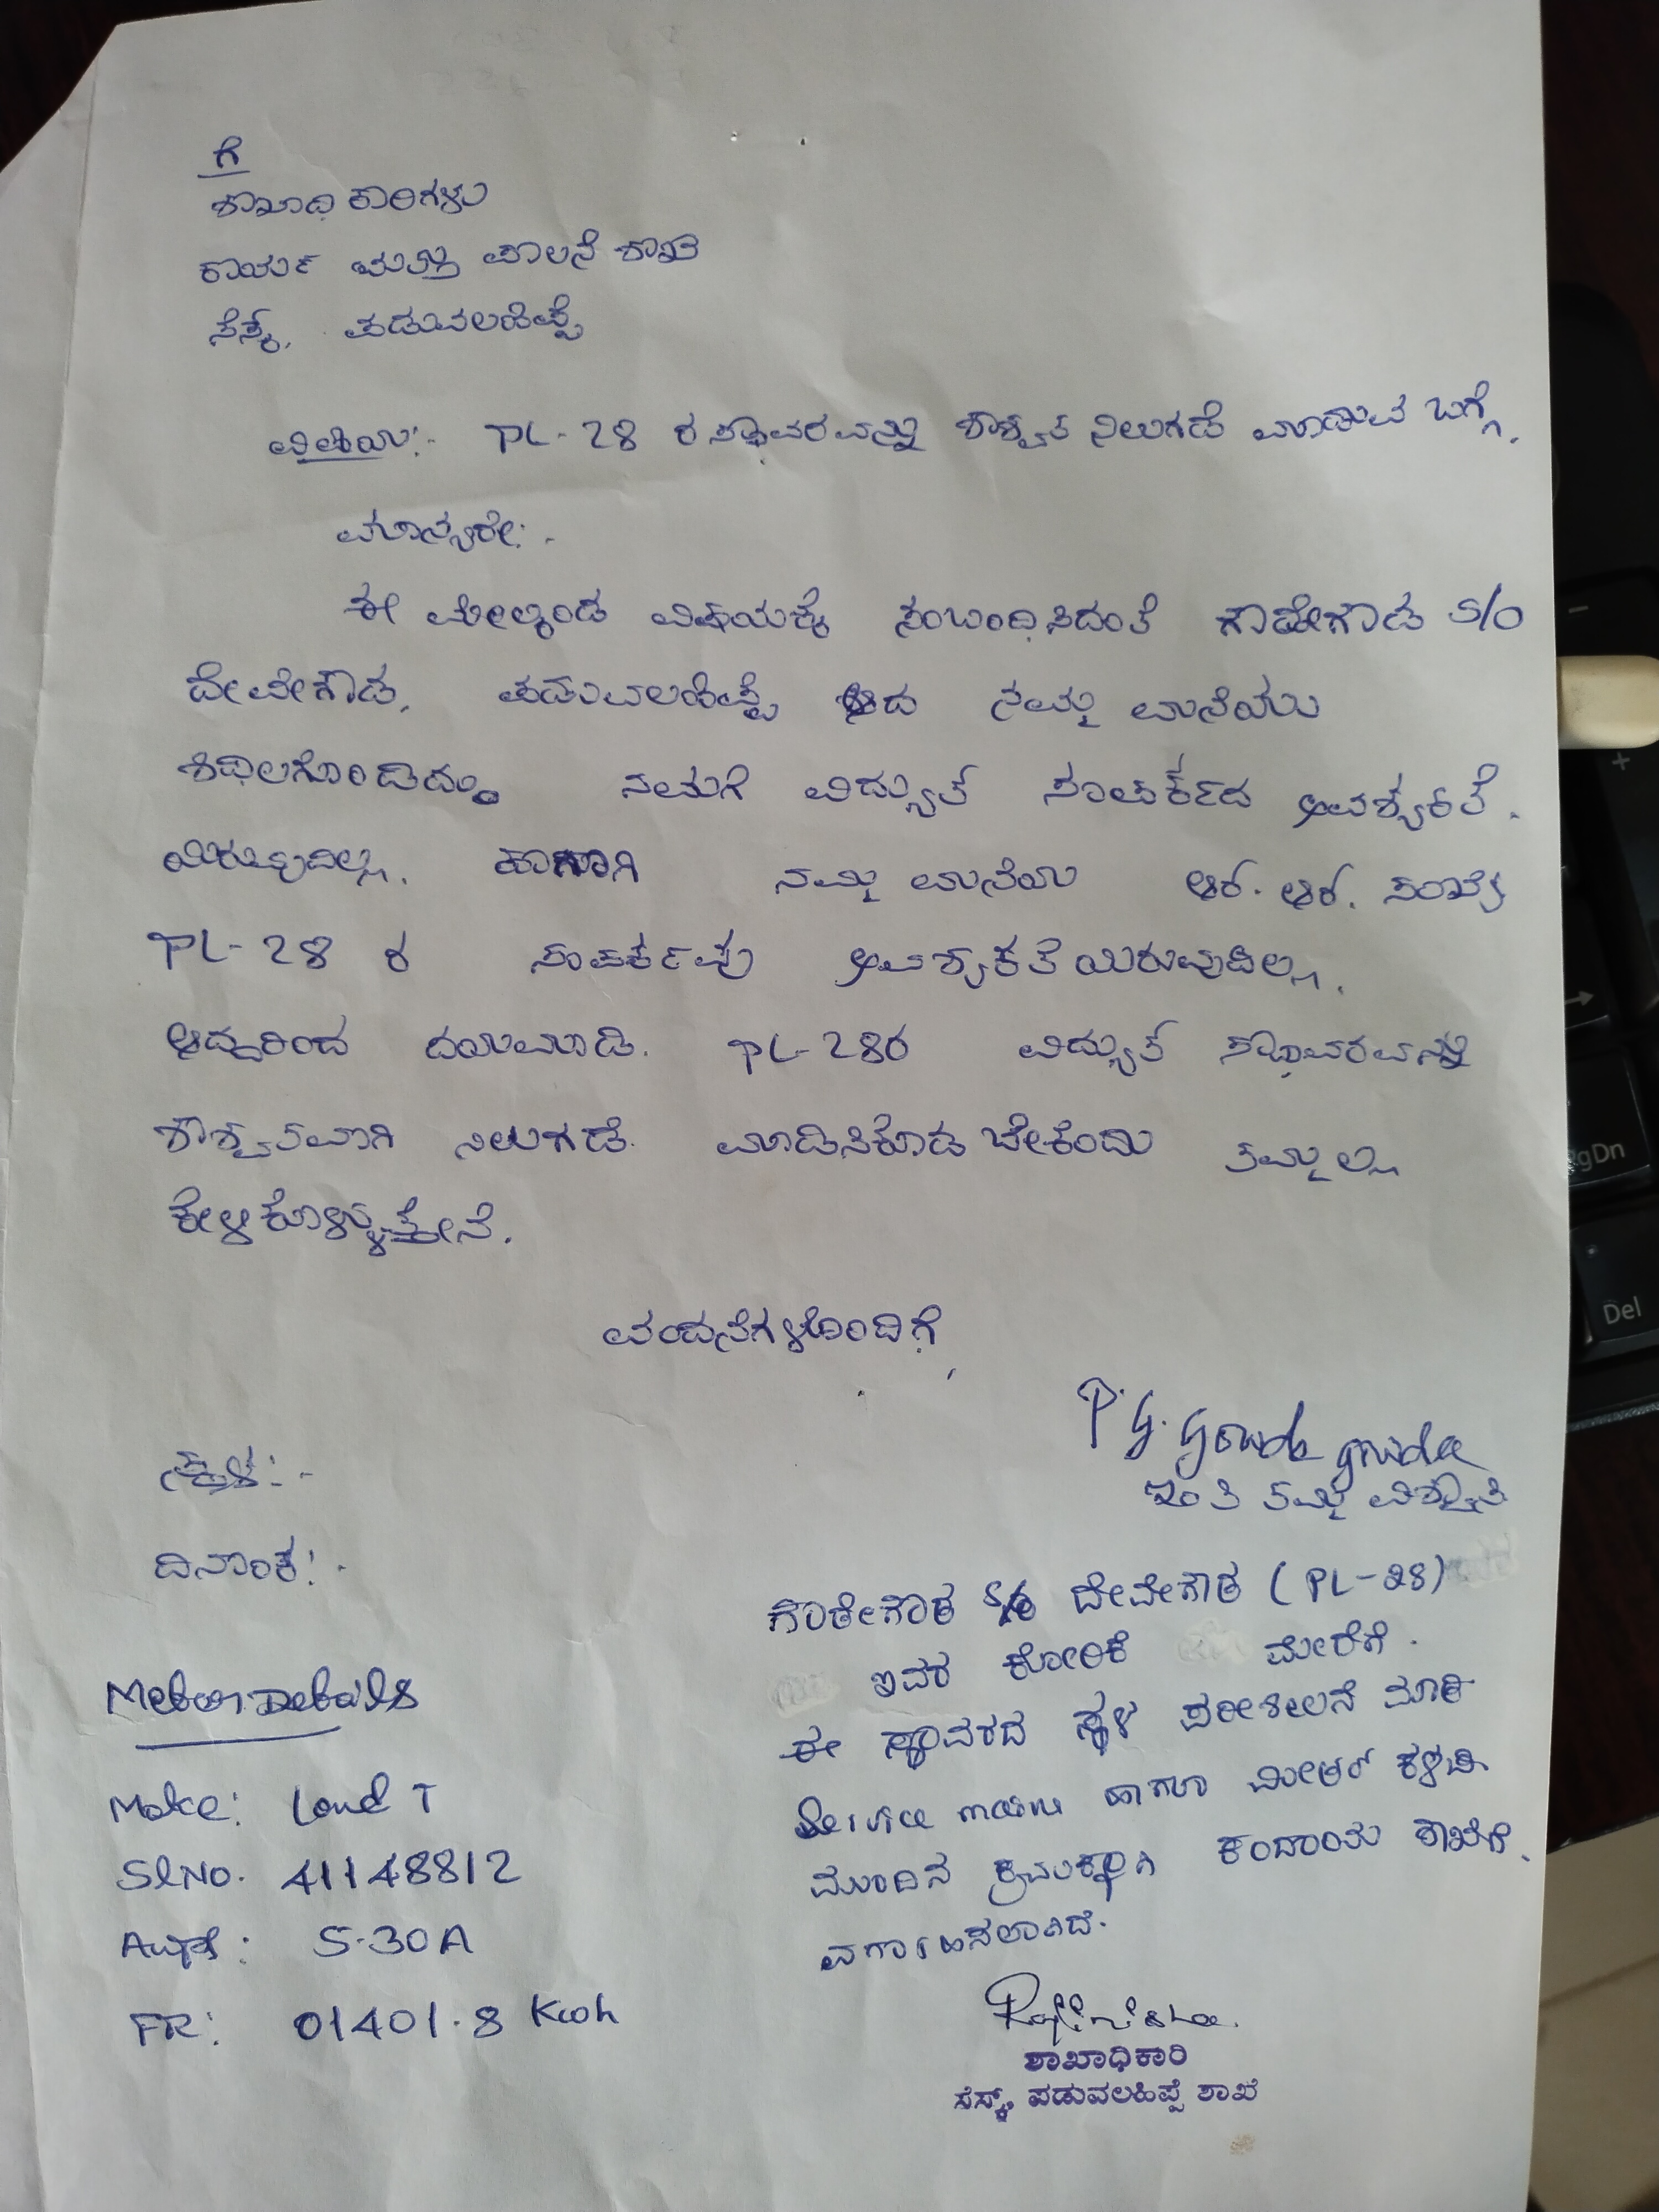 ಗೆ
ಶಾಖಾಧಿಕಾರಿಗಳು
ಕಾರ್ಯ ಮತ್ತು ಪಾಲನೆ ಶಾಖೆ
ಸೆಸ್ಕ್, ಪಡುವಲಹಿಪ್ಪೆ
ವಿಷಯ:- PL-28 ರ ಸ್ಥಾವರವನ್ನು ಶಾಶ್ವತ ನಿಲುಗಡೆ ಮಾಡುವ ಬಗ್ಗೆ.
ಮಾನ್ಯರೇ:-
ಈ ಮೇಲ್ಕಂಡ ವಿಷಯಕ್ಕೆ ಸಂಬಂದಿಸಿದಂತೆ ಗೌಡೇಗೌಡ S/O
ದೇವೇಗೌಡ, ಪಡುವಲಹಿಪ್ಪೆ ಆದ ನಮ್ಮ ಮನೆಯು
ಶಿಥಿಲಗೊಂಡಿದ್ದು ನಮಗೆ ವಿದ್ಯುತ್ ಸಂಪರ್ಕದ ಅವಶ್ಯಕತೆ.
ಯಿರುವುದಿಲ್ಲ. ಹಾಗಾಗಿ ನಮ್ಮ ಮನೆಯ ಆರ್. ಆರ್. ಸಂಖ್ಯೆ
PL-28 ರ ಸಂಪರ್ಕವು ಅವಶ್ಯಕತೆಯಿರುವುದಿಲ್ಲ.
ಆದ್ದರಿಂದ ದಯಮಾಡಿ. PL-28ರ ವಿದ್ಯುತ್ ಸ್ಥಾವರವನ್ನು
ಶಾಶ್ವತವಾಗಿ ನಿಲುಗಡೆ. ಮಾಡಿಸಿಕೊಡಬೇಕೆಂದು ತಮ್ಮಲ್ಲಿ
ಕೇಳಿಕೊಳ್ಳುತ್ತೇನೆ.
ವಂದನೆಗಳೊಂದಿಗೆ,
P. G. Gowda gowda
ಇಂತಿ ತಮ್ಮ ವಿಶ್ವಾಸಿ
ಸ್ಥಳ:-
ದಿನಾಂಕ:-
ಗೌಡೇಗೌಡ S/o ದೇವೇಗೌಡ (PL-28)
ಇವರ ಕೋರಿಕೆ ಮೇರೆಗೆ.
ಈ ಸ್ಥಾವರದ ಸ್ಥಳ ಪರಿಶೀಲನೆ ಮಾಡಿ
Service main ಹಾಗೂ ಮೀಟರ್ ಕಳಚಿ
ಮುಂದಿನ ಕ್ರಮಕ್ಕಾಗಿ ಕಂದಾಯ ಶಾಖೆಗೆ.
ವರ್ಗಾಹಿಸಲಾಗಿದೆ.
Meter Details
Make: L and T
SlNo. 41148812
Amps: 5-30A
FR: 01401.8 Kwh
ಶಾಖಾಧಿಕಾರಿ
ಸೆಸ್ಕ್, ಪಡುವಲಹಿಪ್ಪೆ ಶಾಖೆ
PgDn
Del